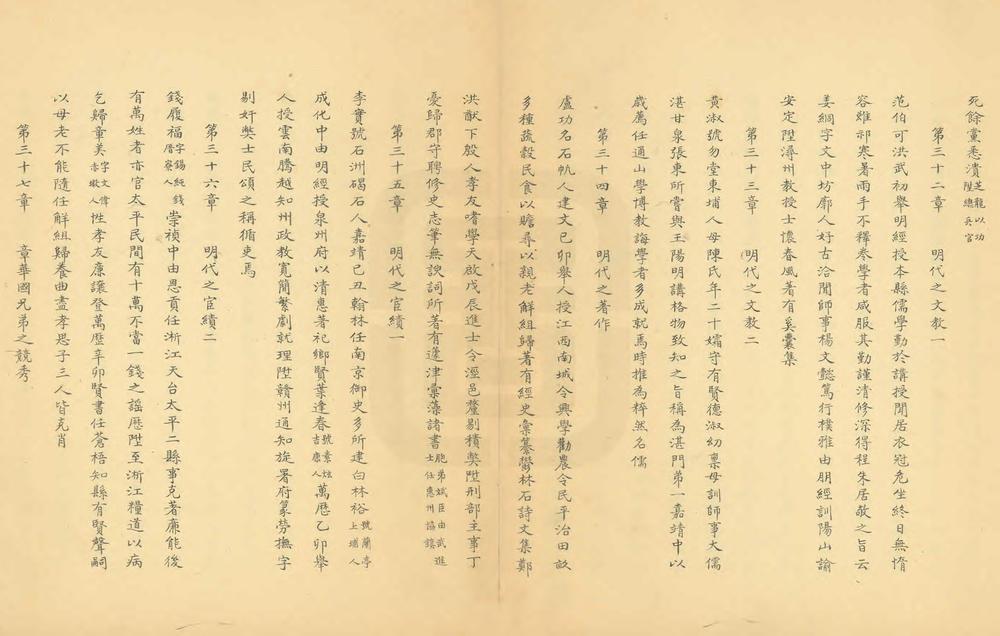 死餘黨悉潰芝龍以功陞總兵官
第三十二章　明代之文教一
范伯可洪武初舉明經授本縣儒學勤於講授閒居衣冠危坐終日無惰
容雖祁寒暑雨手不釋卷學者咸服其勤謹清修深得程朱居敬之旨云
姜綱字文中坊廓人好古洽聞師事楊文懿篤行樸雅由明經訓陽山諭
安定陞潯州教授士懷春風著有奚囊集
第三十三章　明代之文教二
黃淑號勿堂東埔人母陳氏年二十孀守有賢德淑幼稟母訓師事大儒
湛甘泉張東所嘗與王陽明講格物致知之旨稱為湛門第一嘉靖中以
歲薦任通山學博教誨學者多成就焉時推為粹然名儒
第三十四章　明代之著作
盧功名石帆人建文己卯舉人授江西南城令興學勸農令民平治田畝
多種蔬穀民食以贍尋以親老解組歸著有經史彙纂鬱林石詩文集鄭
洪猷下殷人孝友嗜學天啟戊辰進士令涇邑釐剔積獘陞刑部主事丁
憂歸郡守聘修史志筆無諛詞所著有蘧津彙藻諸書胞弟斌臣由武進士任惠州協鎮
第三十五章　明代之宦績一
李實號石洲碣石人嘉靖己丑翰林任南京御史多所建白林裕號蘭亭上埔人
成化中由明經授泉州府以清惠著祀鄉賢葉逢春號素炫吉康人萬歷乙卯舉
人授雲南騰越知州政教寬簡繁劇就理陞贛州通知旋署府篆勞撫字
剔奸獘士民頌之稱循吏焉
第三十六章　明代之宦績二
錢履福字錫純錢厝寮人崇禎中由恩貢任淅江天台太平二縣事克著廉能後
有萬姓者亦官太平民間有十萬不當一錢之謠歷陞至淅江糧道以病
乞歸章美字文偉赤墩人性孝友廉讓登萬歷辛卯賢書任蒼梧知縣有賢聲嗣
以母老不能隨任解組歸養曲盡孝思子三人皆克肖
第三十七章　章華國兄弟之競秀